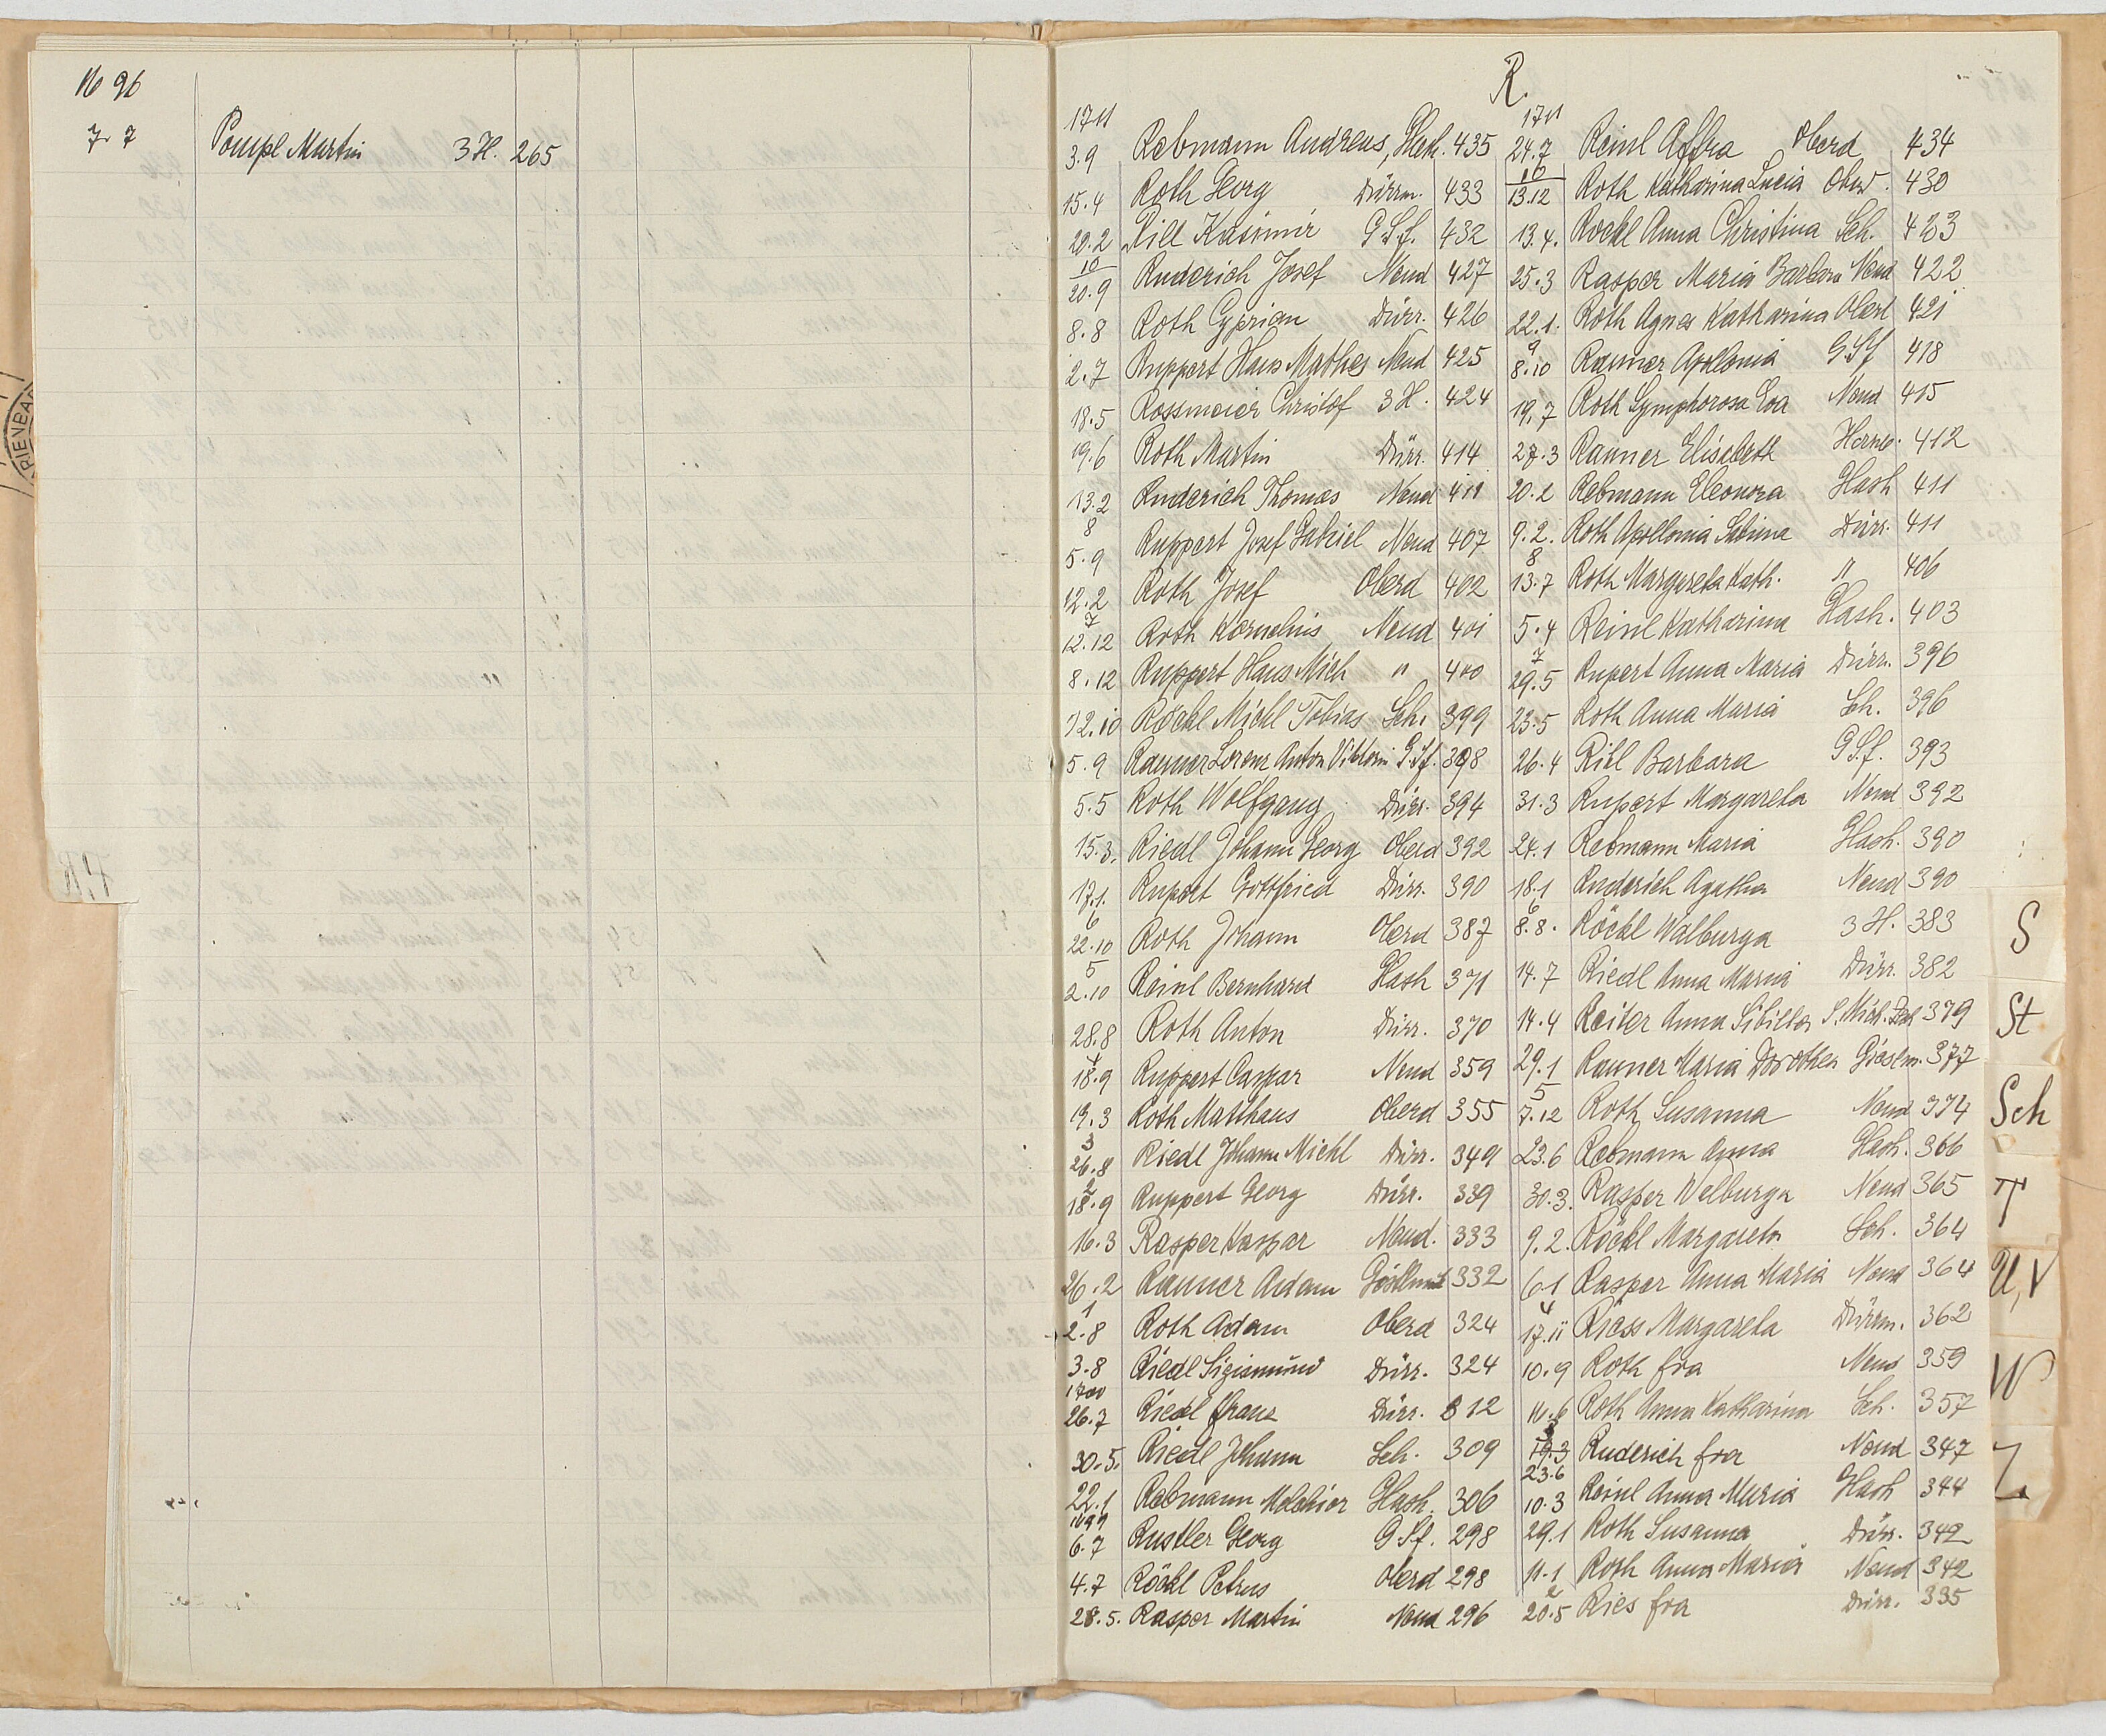 1696
7.7 Pompl Martin 3 H. 265
R.
1711
3.9 Rebmann Andreas, Hash. 435
15.4 Roth Georg Dürrm. 433
20.2 Rill Kasimir G.S.f. 432
10
20.9 Ruderich Josef Neud 427
8.8 Roth Cyprian Dürr. 426
2.7 Ruppert Hans Mathes Neud 425
18.5 Rossmeier Christof 3 H. 424
19.6 Roth Martin Dürr. 414
13.2 Ruderich Thomas Neud 411
8
5.9 Ruppert Josef Gabriel Neud 407
12.2 Roth Josef Oberd 402
7
12.12 Roth Kornelius Neud 401
8.12 Ruppert Hans Mich " 400
12.10 Röckl Michl Tobias Sch. 399
5.9 Rauner Lorenz Anton Viktorin G.Sf. 398
5.5 Roth Wolfgang Dürr. 394
15.3. Riedl Johann Georg Oberd 392
17.1. Rupert Gottfried Dürr. 390
6
22.10 Roth Johann Oberd 387
5
2.10 Reinl Bernhard Hash 371
28.8 Roth Anton Dürr. 370
4
18.9 Ruppert Caspar Neud 359
19.3 Roth Matthäus Oberd 355
3
26.8 Riedl Johann Michl Dürr. 349
2
18.9 Ruppert Georg Dürr. 339
16.3 Rasper Kaspar Neud. 333
26.2 Rauner Adam 332
1
2.8 Roth Adam Oberd 324
3.8 Riedl Sigismund Dürr. 324
1700
26.7 Riedl Franz Dürr. 312
30.5. Riedl Johann Sch. 309
22.1 Rebmann Melchior Hash. 306
1699
6.7 Rustler Georg G.Sf. 298
4.7 Röckl Petrus Oberd 298
28.5. Rasper Martin Neud 296
1711
24.7 Reinl Affra Oberd 434
10
13.12 Roth Katharina Lucia Oberd. 430
13.4. Rockl Anna Christina Sch. 423
25.3 Rasper Maria Barbara Neud 422
22.1. Roth Agnes Katharina Oberd 421
9
8.10 Rauner Apollonia G.Sf 418
19.7 Roth Symphorosa Eva Neud 415
27.3 Rauner Elisabeth 412
20.2 Rebmann Eleonora Hash 411
9.2. Roth Apollonia Sabina Dürr. 411
8
13.7 Roth Margareta Kath. " 406
5.4 Reinl Katharina Hash. 403
7
29.5 Rupert Anna Maria Dürr. 396
23.5 Roth Anna Maria Sch. 396
26.4 Rill Barbara G.S.f. 393
31.3 Rupert Margareta Neud 392
24.1 Rebmann Maria Hash. 390
18.1 Ruderich Agatha Neud 390
6
8.8. Röckl Walburga 3 H. 383
14.7 Riedl Anna Maria Dürr. 382
14.4 Reiter Anna Sibilla S. Mich. 379
29.1 Rauner Maria Dorothea 377
5
7.12 Roth Susanna Neud 374
23.6 Rebmann Anna Hash. 366
30.3. Rasper Walburga Neud 365
9.2. Röckl Margareta Sch. 364
6.1 Rasper Anna Maria Neud 364
4
17.11 Riess Margareta Dürrm. 362
10.9 Roth fra Neud 359
11.6 Roth Anna Katharina Sch. 357
3
19.3
23.6 Ruderich fra Neud 347
10.3 Reinl Anna Maria Hash 344
29.1 Roth Susanna Dürr. 342
11.1 Roth Anna Maria Neud 342
2
20.5 Ries fra Dürr. 335
S
St
Sch
T
U,V
W
Z